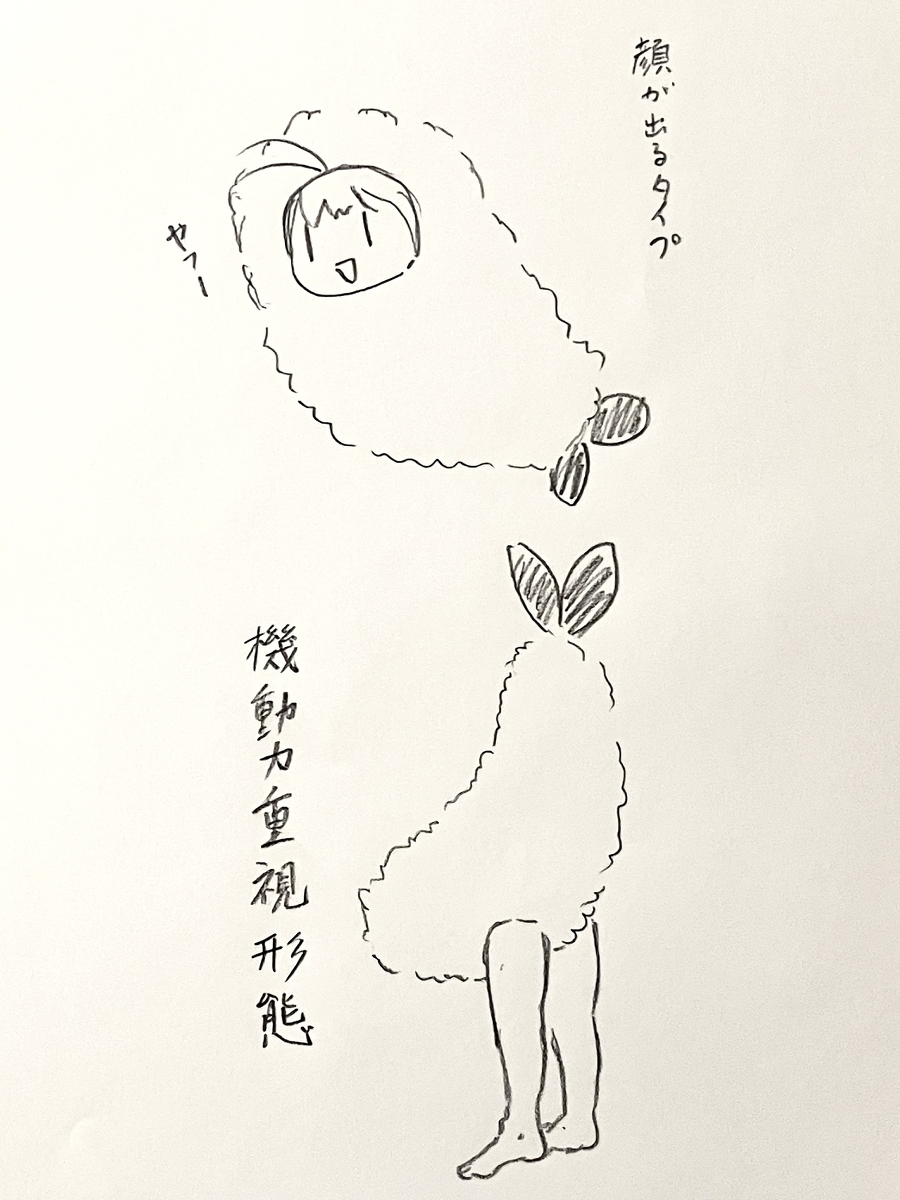 顔が出るタイプ
やふー
機動力重視形態